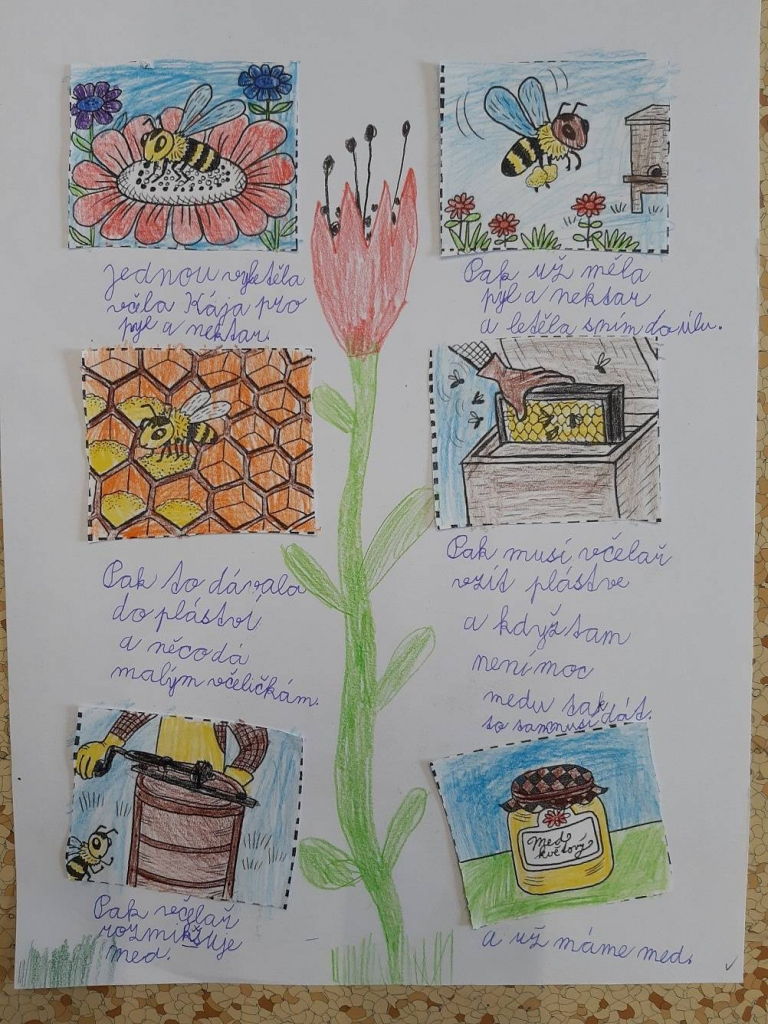 Jednou vyletěla
včela Kája pro
pyl a nektar.
Pak už měla
pyl a nektar
a letěla sním do úlu.
Pak to dávala
do pláství
a něco dá
malým včeličkám.
Pak musí včelař
vzít plástve
a když tam
není moc
medu tak
to tam musí dát.
Pak včelař
rozmixuje
med.
Med
květový
a už máme med.